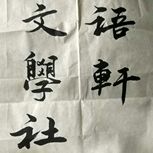 語軒
文學社